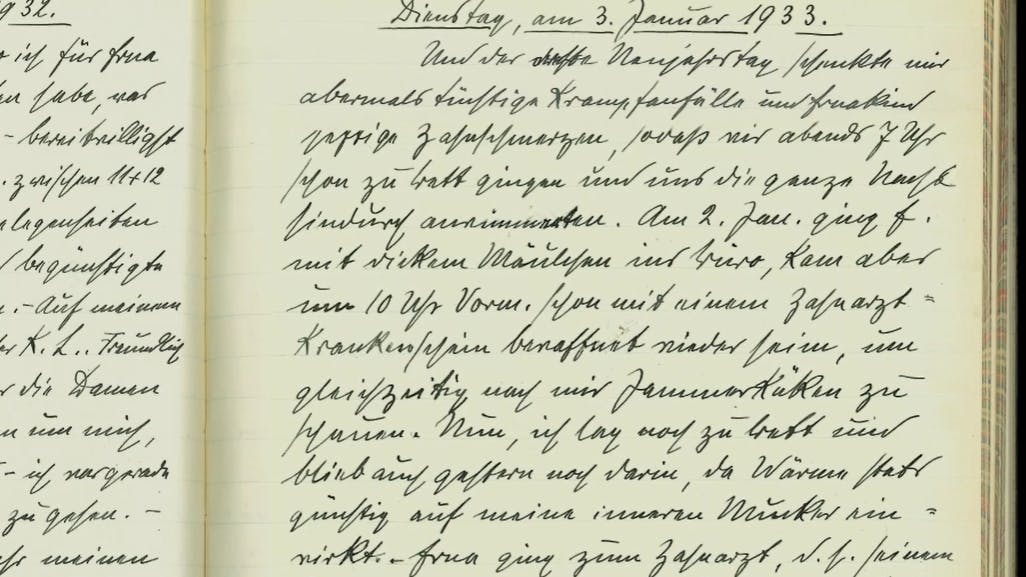 932.
ich für Erna
habe, was
- bereitwilligst
. zwischen 11 + 12
elegenheiten
begünstigte
. - Auf meinem
K. L.. Freundlich
die Damen
um mich,
- ich war gerade
zu gehen. -
meinen
Dienstag, am 3. Januar 1933.
Und der Neujahrstag schenkte mir
abermals tüchtige Krampfanfälle und Ernakind
Zahnschmerzen, sodaß wir abends 7 Uhr
schon zu Bett gingen und uns die ganze Nacht
hindurch anwimmerten. Am 2. Jan. ging E.
mit dickem Mäulchen ins Büro, kam aber
um 10 Uhr Vorm. schon mit einem Zahnarzt =
Krankenschein bewaffnet wieder heim, um
gleichzeitig nach mir Jammerküken zu
schauen. Nun, ich lag noch zu Bett und
blieb auch gestern noch darin, da Wärme stets
günstig auf meine inneren Mucker ein =
wirkt. - Erna ging zum Zahnarzt, d. h. seinem